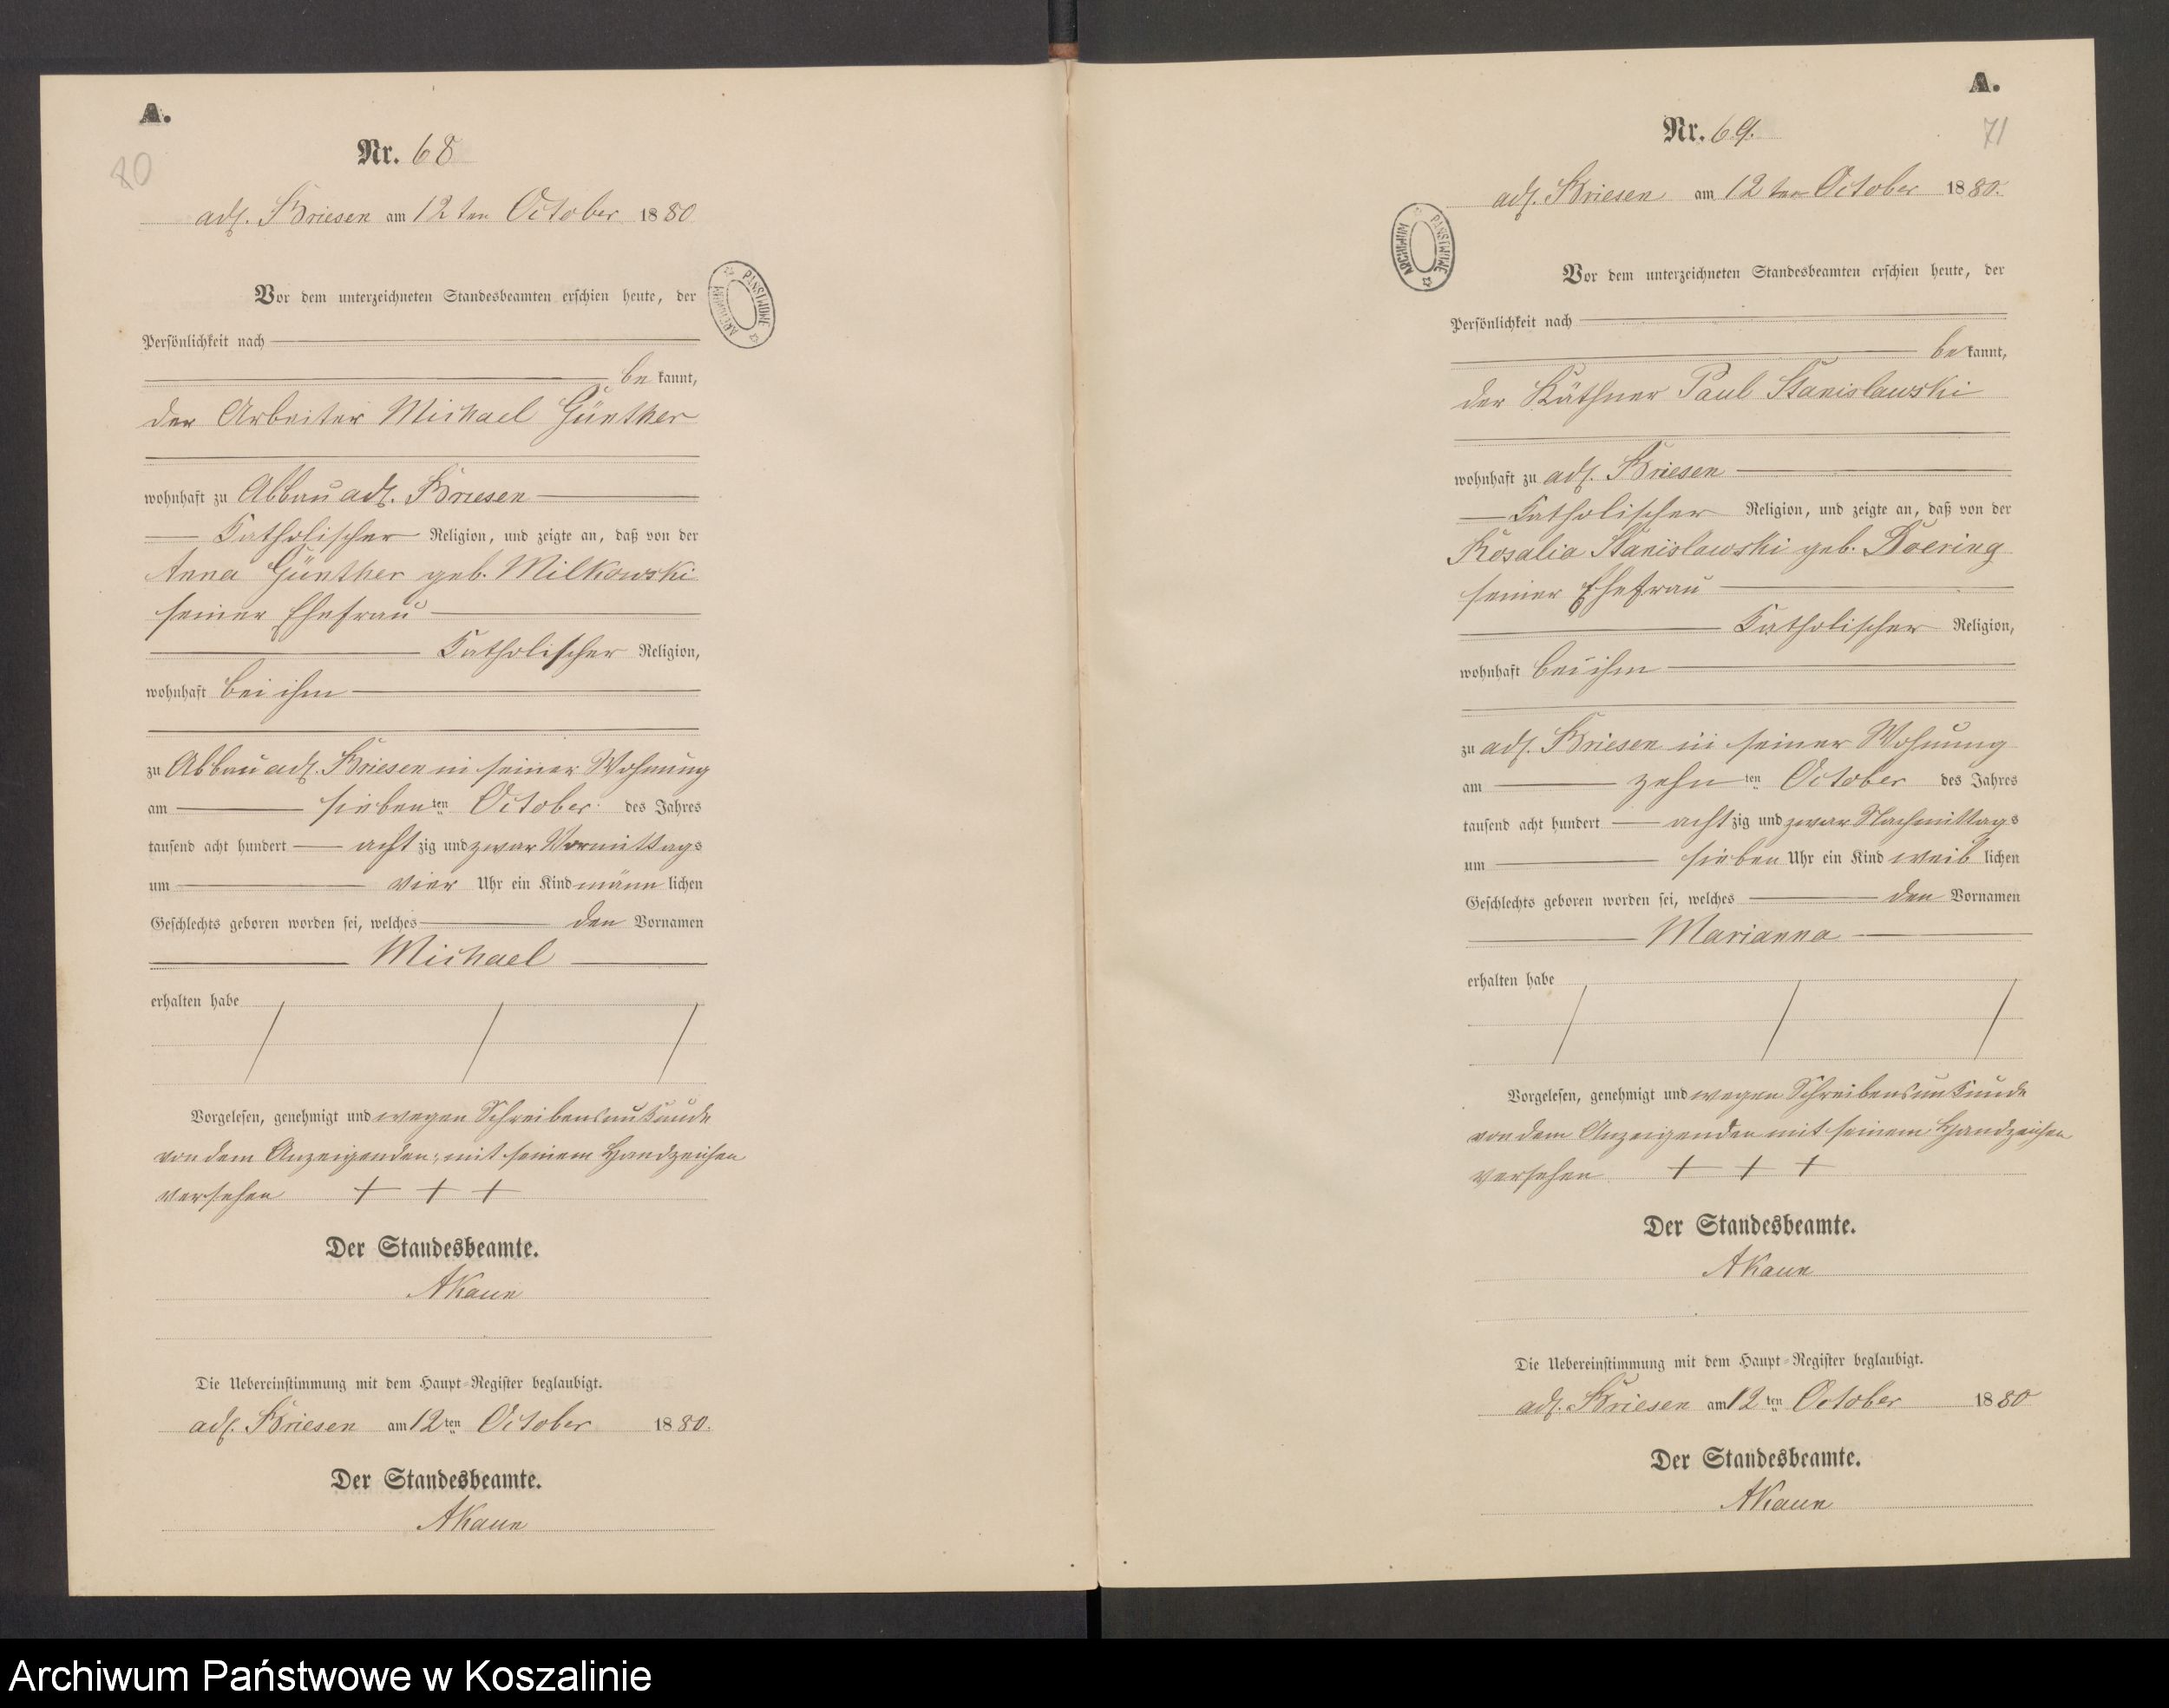 A.
80
Nr. 68
adl. Briesen am 12ten October 1880
Vor dem unterzeichneten Standesbeamten erschien heute, der
Persönlichkeit nach
bekannt,
der Arbeiter Michael Günther
wohnhaft zu Abbau adl. Briesen
Katholischer Religion, und zeigte an, daß von der
Anna Günther geb. Milkowski
seiner Ehefrau
Katholischer Religion,
wohnhaft bei ihm
zu Abbau adl. Briesen in seiner Wohnung
am siebenten October des Jahres
tausend acht hundert achtzig und zwar Vormittags
um vier Uhr ein Kind männlichen
Geschlechts geboren worden sei, welches den Vornamen
Michael
erhalten habe
Vorgelesen, genehmigt und wegen Schreibensunkunde
von dem Anzeigenden, mit seinem Handzeichen
versehen + + +
Der Standesbeamte.
Die Uebereinstimmung mit dem Haupt-Register beglaubigt.
adl. Briesen am 12ten October 1880.
Der Standesbeamte.
ARCHIWUM PAŃSTWOWE
A.
71
Nr. 69.
adl. Briesen am 12ten October 1880.
Vor dem unterzeichneten Standesbeamten erschien heute, der
Persönlichkeit nach
bekannt,
der Käthner Paul Stanislawski
wohnhaft zu adl. Briesen
Katholischer Religion, und zeigte an, daß von der
Rosalia Stanislawski geb. Doering
seiner Ehefrau
Katholischer Religion,
wohnhaft bei ihm
zu adl. Briesen in seiner Wohnung
am zehnten October des Jahres
tausend acht hundert achtzig und zwar Nachmittags
um sieben Uhr ein Kind weiblichen
Geschlechts geboren worden sei, welches den Vornamen
Marianna
erhalten habe
Vorgelesen, genehmigt und wegen Schreibensunkunde
von dem Anzeigenden mit seinem Handzeichen
versehen + + +
Der Standesbeamte.
Die Uebereinstimmung mit dem Haupt-Register beglaubigt.
adl. Briesen am 12ten October 1880
Der Standesbeamte.
ARCHIWUM PAŃSTWOWE
Archiwum Państwowe w Koszalinie